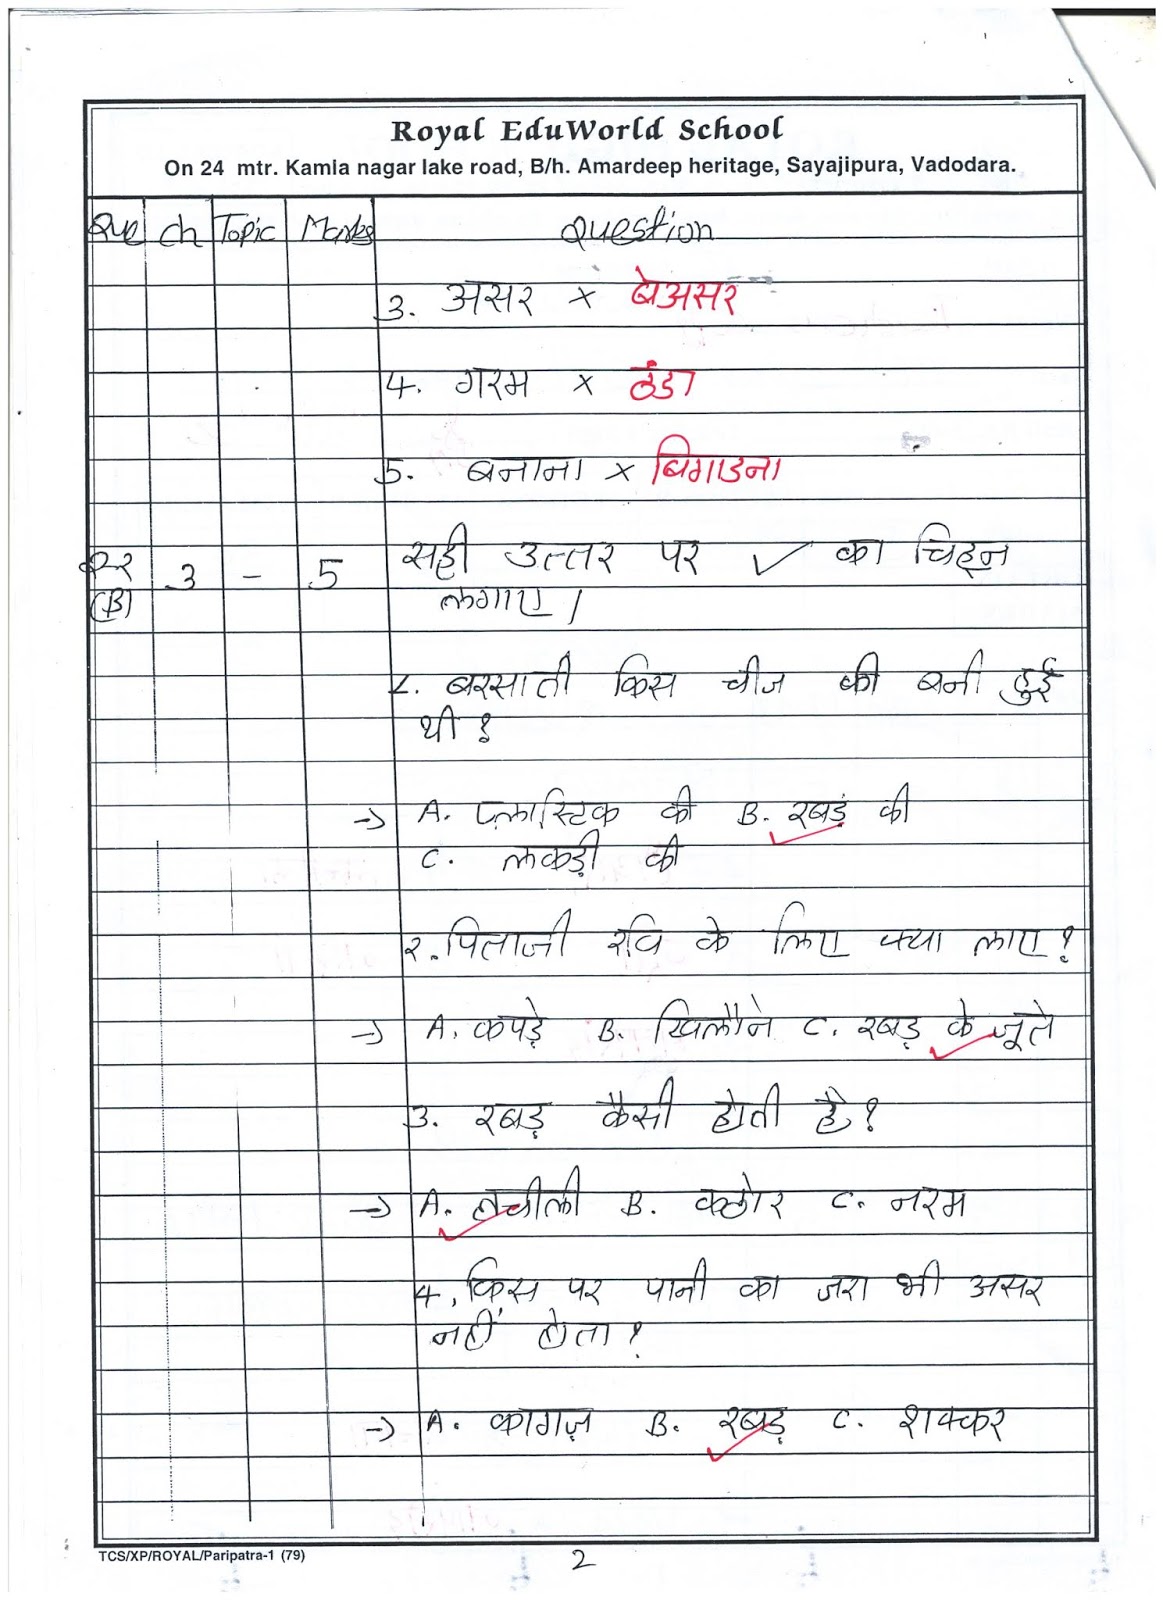 Royal EduWorld School
On 24 mtr. Kamla nagar lake road, B/h. Amardeep heritage, Sayajipura, Vadodara.
Que Ch Topic Marks Question
3. असर × बेअसर
4. गरम × ठंडा
5. बनाना × बिगाडना
Q२ (B) 3 - 5 सही उत्तर पर ✓ का चिह्न
लगाए।
१. बरसाती किस चीज की बनी हुई
थी?
→ A. प्लास्टिक की B. रबड़ की
C. लकड़ी की
२. पिताजी रवि के लिए क्या लाए?
→ A. कपड़े B. खिलौने C. रबड़ के जूते
3. रबड़ कैसी होती है?
→ A. लचीली B. कठोर C. नरम
4. किस पर पानी का जरा भी असर
नहीं होता?
→ A. कागज़ B. रबड़ C. शक्कर
TCS/XP/ROYAL/Paripatra-1 (79)
2